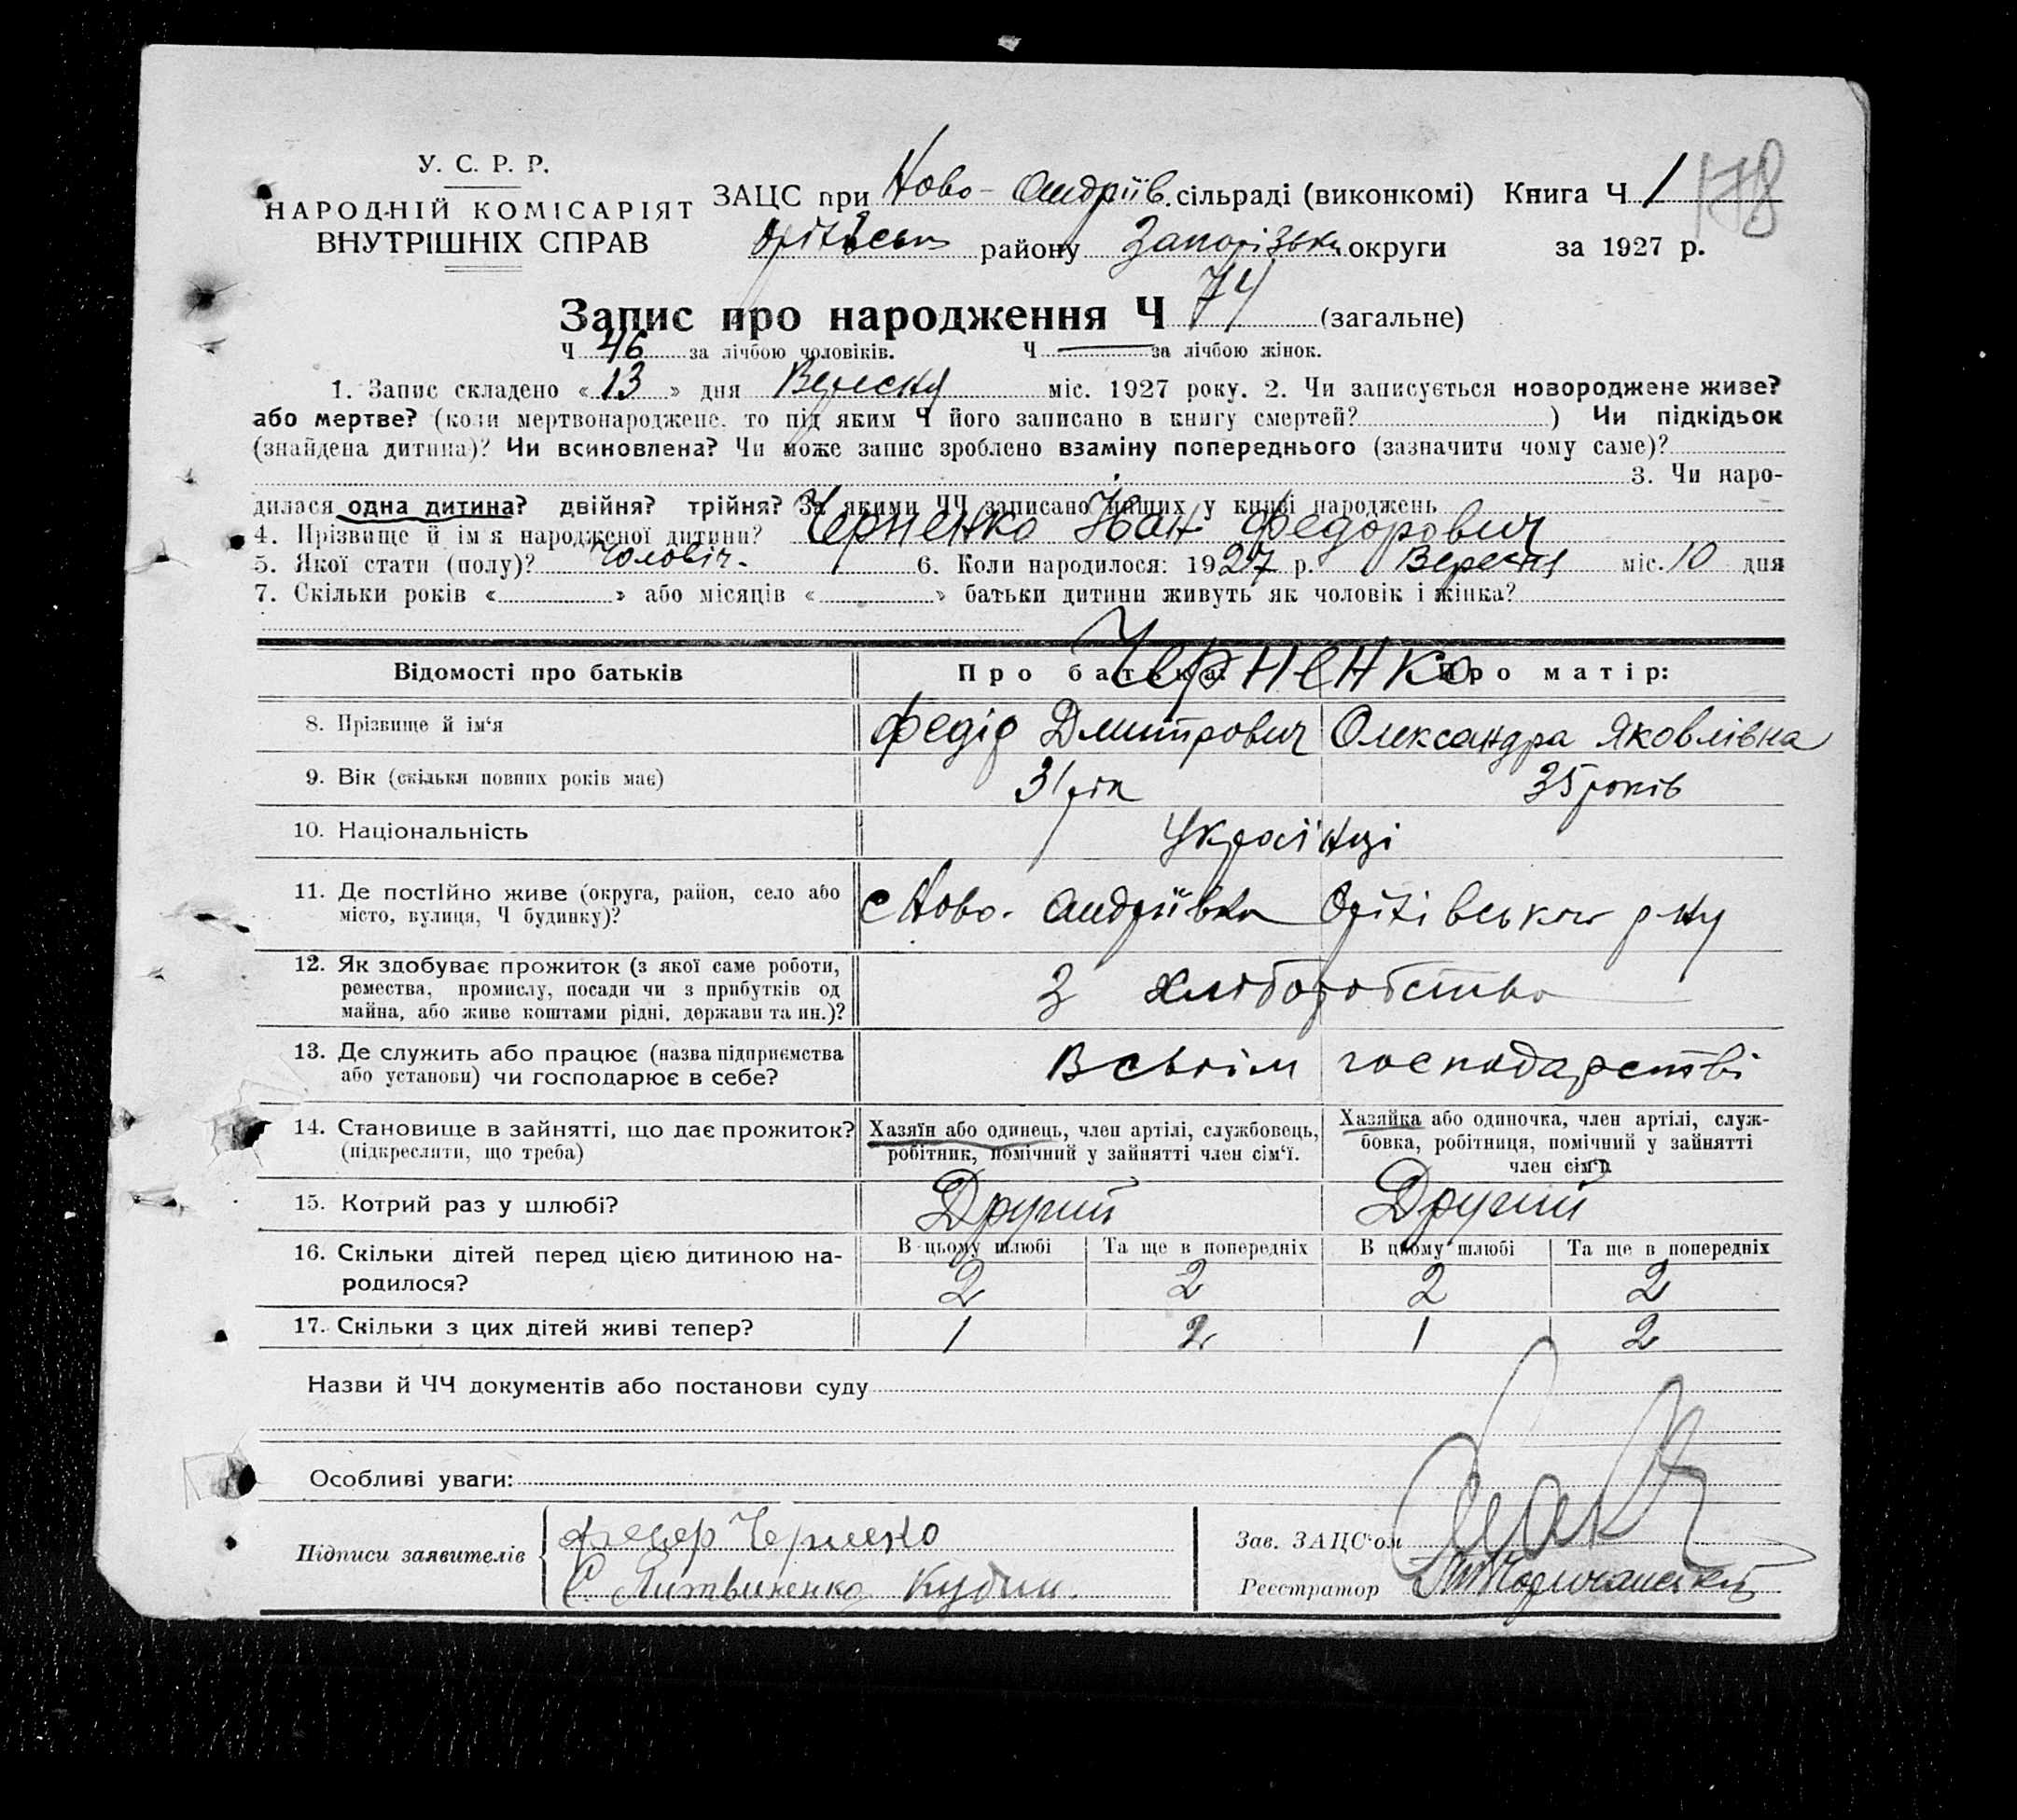 У. С. Р. Р.
НАРОДНІЙ КОМІСАРІЯТ
ВНУТРІШНІХ СПРАВ
ЗАЦС при Ново-Андріїв. сільраді (виконкомі) Книга Ч 1 178
Оріхівськ. району Запорізьк. округи за 1927 р.
Запис про народження Ч 74 (загальне)
Ч 46 за лічбою чоловіків. Ч — за лічбою жінок.
1. Запис складено «13» дня Вересня міс. 1927 року. 2. Чи записується новороджене живе?
або мертве? (коли мертвонароджене, то під яким Ч його записано в книгу смертей? ) Чи підкідьок
(знайдена дитина)? Чи всиновлена? Чи може запис зроблено взаміну попереднього (зазначити чому саме)?
3. Чи наро-
дилася одна дитина? двійня? трійня? За якими ЧЧ записано інших у книзі народжень
4. Прізвище й ім'я народженої дитини? Черненко Іван Федорович
5. Якої стати (полу)? Чоловіч. 6. Коли народилося: 1927 р. Вересня міс. 10 дня
7. Скільки років « » або місяців « » батьки дитини живуть як чоловік і жінка?
Черненко
Відомості про батьків Про батька: Про матір:
8. Прізвище й ім'я Федір Дмитрович Олександра Яковлівна
9. Вік (скільки повних років має) 31 рік 35 років
10. Національність Українці
11. Де постійно живе (округа, район, село або
місто, вулиця, Ч будинку)? с Ново-Андріївка Оріхівського р-ну
12. Як здобуває прожиток (з якої саме роботи,
ремества, промислу, посади чи з прибутків од
майна, або живе коштами рідні, держави та ин.)? З хліборобства
13. Де служить або працює (назва підприємства
або установи) чи господарює в себе? В своїм господарстві
14. Становище в зайнятті, що дає прожиток?
(підкреслити, що треба)
Хазяїн або одинець, член артілі, службовець,
робітник, помічний у зайнятті член сім'ї.
Хазяйка або одиночка, член артілі, служ-
бовка, робітниця, помічний у зайнятті
член сім'ї
15. Котрий раз у шлюбі? Другий Другий
16. Скільки дітей перед цією дитиною на-
родилося?
В цьому шлюбі Та ще в попередніх В цьому шлюбі Та ще в попередніх
2 2 2 2
17. Скільки з цих дітей живі тепер? 1 2 1 2
Назви й ЧЧ документів або постанови суду
Особливі уваги:
Підписи заявителів
С. Литвиненко
Зав. ЗАЦС'ом
Реєстратор